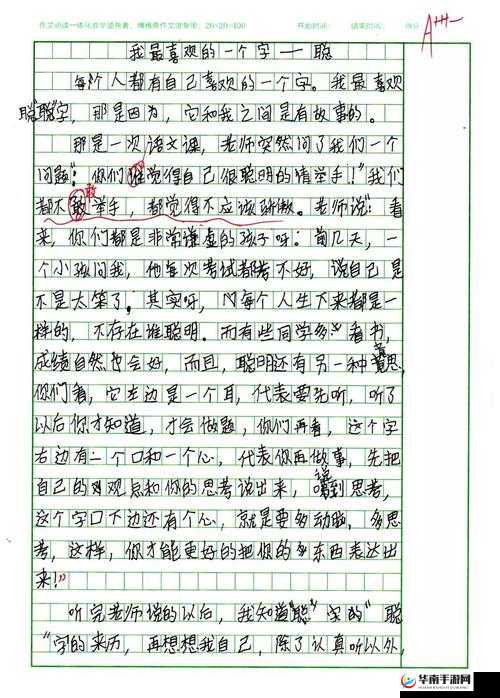 作文阅读一体化自学领先者，博梅奇作文馆专用，20×20=400 开始时间： 结束时间： 得分
A+++
我最喜欢的一个字——聪
每个人都有自己喜欢的一个字。我最喜欢
"聪"字，那是因为，它和我之间是有故事的。
那是一次语文课，老师突然问了我们一个
问题："你们谁觉得自己很聪明的请举手！"我们
敢
都不敢举手，都觉得不应该骄傲。老师说："看
来，你们都是非常谦虚的孩子呀！前几天，一
个小孩问我，他每次考试都考不好，说自己是
不是太笨了。其实呀，每个人生下来都是一
样的，不存在谁聪明。而有些同学多看书，
成绩自然也会好，而且，聪明还有另一种意思，
你们看，它左边是一个耳，代表要先听，听了
以后你才知道，才会做题，你们再看，这个字
右边有一个口和一个心，代表你再做事，先把
自己的观点和你的思考说出来，说到思考，
这个字口下边还有个心，就是要多动脑，多思
考，这样，你才能更好的把你的东西表达出
来！"
听完老师说的以后，我知道"聪"字的"聪
"字的来历，再想想我自己，除了认真听以外，
华南手游网